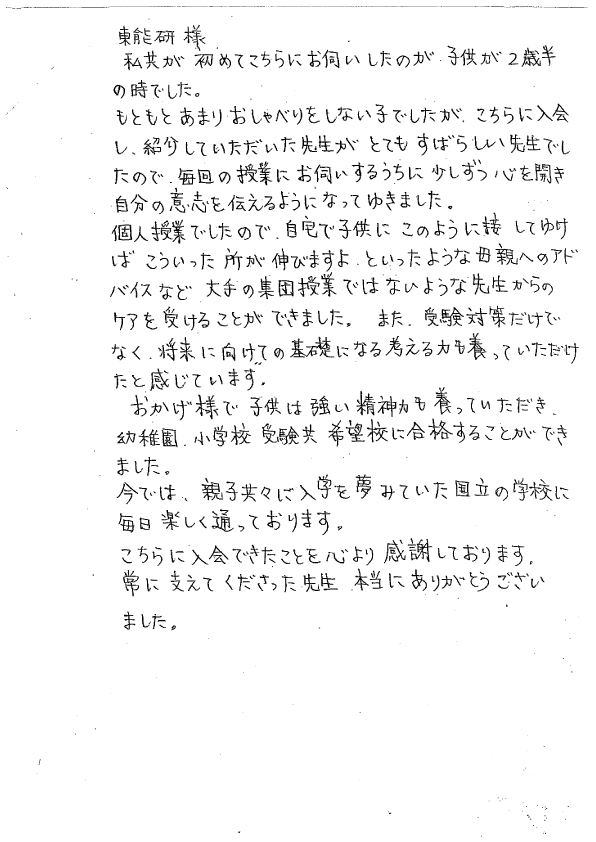 東能研 様
私共が 初めてこちらにお伺いしたのが 子供が2歳半
の時でした。
もともと あまりおしゃべりをしない子でしたが、こちらに入会
し、紹介していただいた先生が とても すばらしい先生でし
たので、毎回の授業に お伺いするうちに 少しずつ 心を開き
自分の意志を伝えるようになってゆきました。
個人授業でしたので、自宅で子供に このように接 してゆけ
ば こういった 所が 伸びますよ、といったような母親へのアド
バイスなど 大手の集団授業ではないような先生からの
ケアを受けることが できました。 また、受験対策だけで
なく、将来に向けての基礎になる考える力も養っていただけ
たと感じています。
おかげ様で 子供は 強い 精神力も 養っていただき、
幼稚園、小学校 受験共 希望校に合格することができ
ました。
今では、親子共々に入学を夢みていた国立の学校に
毎日 楽しく通っております。
こちらに入会できたことを心より 感謝しております。
常に 支えてくださった先生 本当に ありがとうござい
ました。